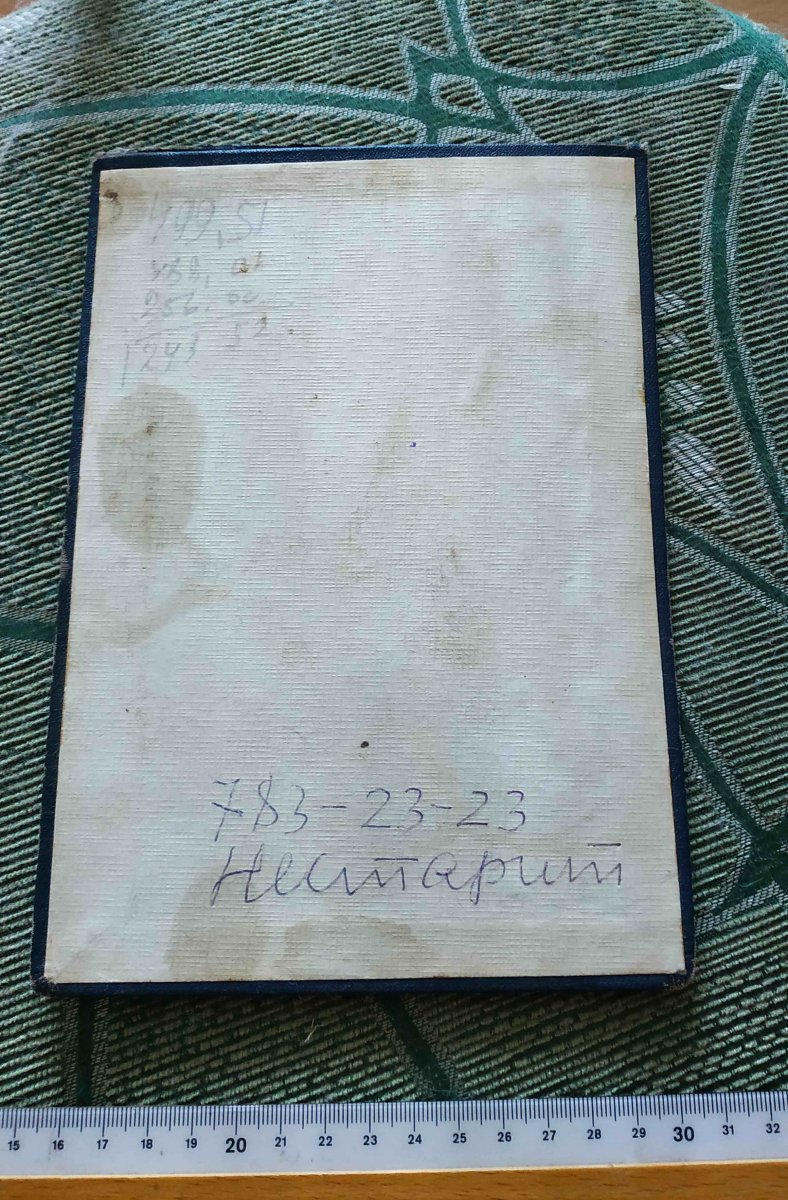 499,51
488, 01
256.00
1243 52
783-23-23
Нестарит
15 16 17 18 19 20 21 22 23 24 25 26 27 28 29 30 31 32